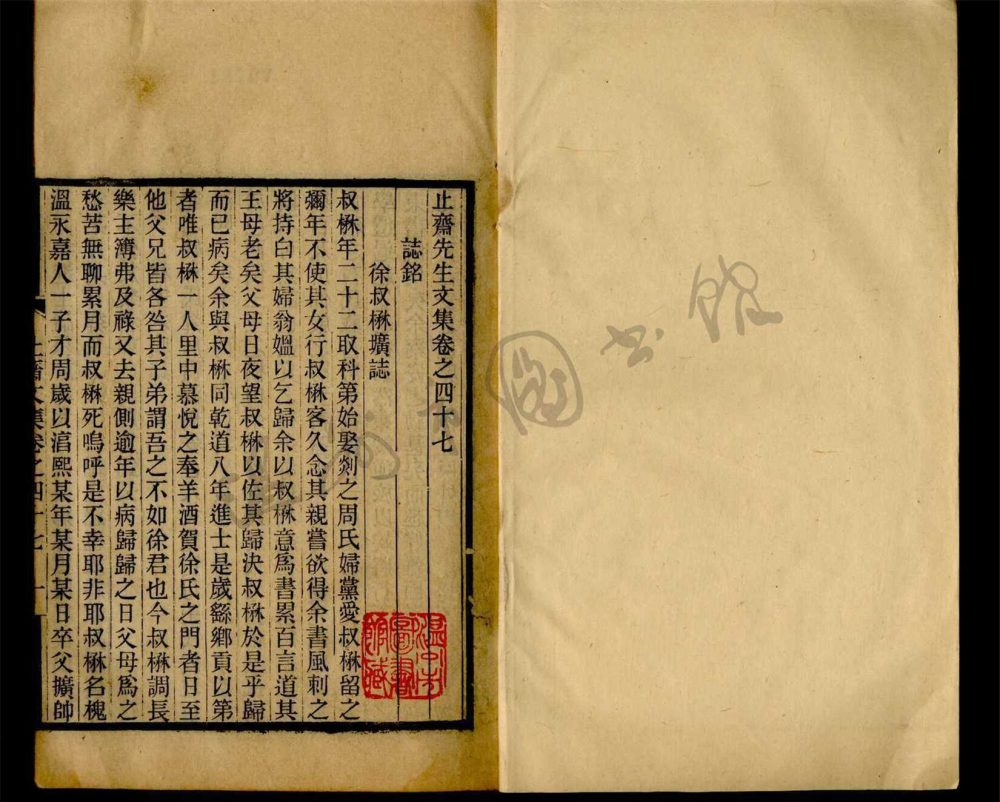 止齋先生文集卷之四十七
誌銘
徐叔楙壙誌
叔楙年二十二取科第始娶剡之周氏婦黨愛叔楙留之
彌年不使其女行叔楙客久念其親嘗欲得余書風刺之
將持白其婦翁媼以乞歸余以叔楙意爲書累百言道其
王母老矣父母日夜望叔楙以佐其歸決叔楙於是乎歸
而已病矣余與叔楙同乾道八年進士是歲繇鄉貢以第
者唯叔楙一人里中慕悅之奉羊酒賀徐氏之門者日至
他父兄皆各咎其子弟謂吾之不如徐君也今叔楙調長
樂主簿弗及祿又去親側逾年以病歸歸之日父母爲之
愁苦無聊累月而叔楙死嗚呼是不幸耶非耶叔楙名槐
溫永嘉人一子才周歲以淯熙某年某月某日卒父擴帥
止齋文集卷之四十七 一
溫州市
圖書
館藏
圖書館